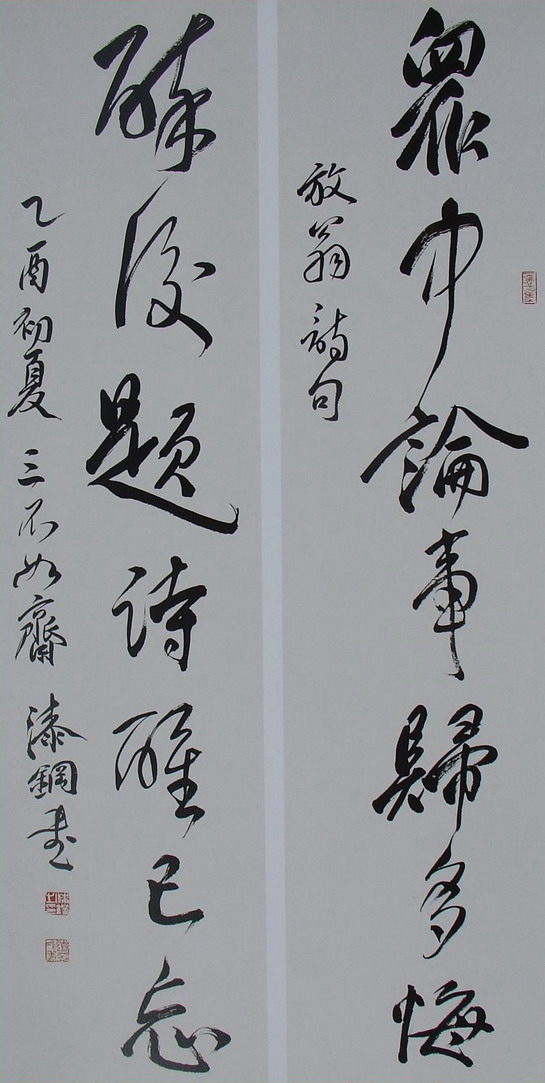 眾中論事歸多悔
放翁詩句
醉後題詩醒已忘
乙酉初夏三不如齋漆鋼書